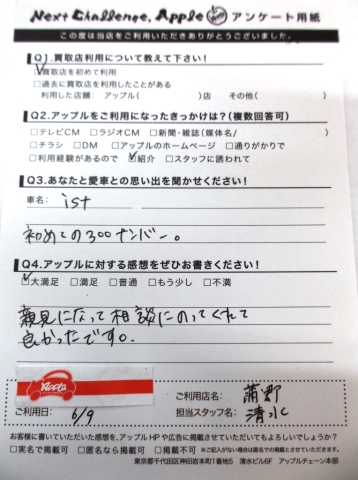 Next Challenge. Apple アンケート用紙
この度は当店をご利用いただきありがとうございました。
Q1.買取店利用について教えて下さい!
☑買取店を初めて利用
□過去に買取店を利用したことがある
利用した店舗: アップル( )店 その他( )
Q2.アップルをご利用になったきっかけは?(複数回答可)
□テレビCM □ラジオCM □新聞・雑誌(媒体名/ )
□チラシ □DM □アップルのホームページ □通りがかりで
□利用経験があるので ☑紹介 □スタッフに誘われて
Q3.あなたと愛車との思い出を聞かせください!
車名: ist
初めての300ナンバー。
Q4.アップルに対する感想をぜひお書きください!
☑大満足 □満足 □普通 □もう少し □不満
親見になって相談にのってくれて
良かったです。
Apple
ご利用店名: 蒲郡
ご利用日: 6/9 担当スタッフ名: 清水
お客様に書いていただいた感想を、アップルHPや広告に掲載させていただいてもよろしいでしょうか?
□実名で掲載可 □匿名なら掲載可 □掲載不可 ※ご記入がない場合は匿名での掲載とさせていただきます。
東京都千代田区神田岩本町1番地5 清水ビル6F アップルチェーン本部